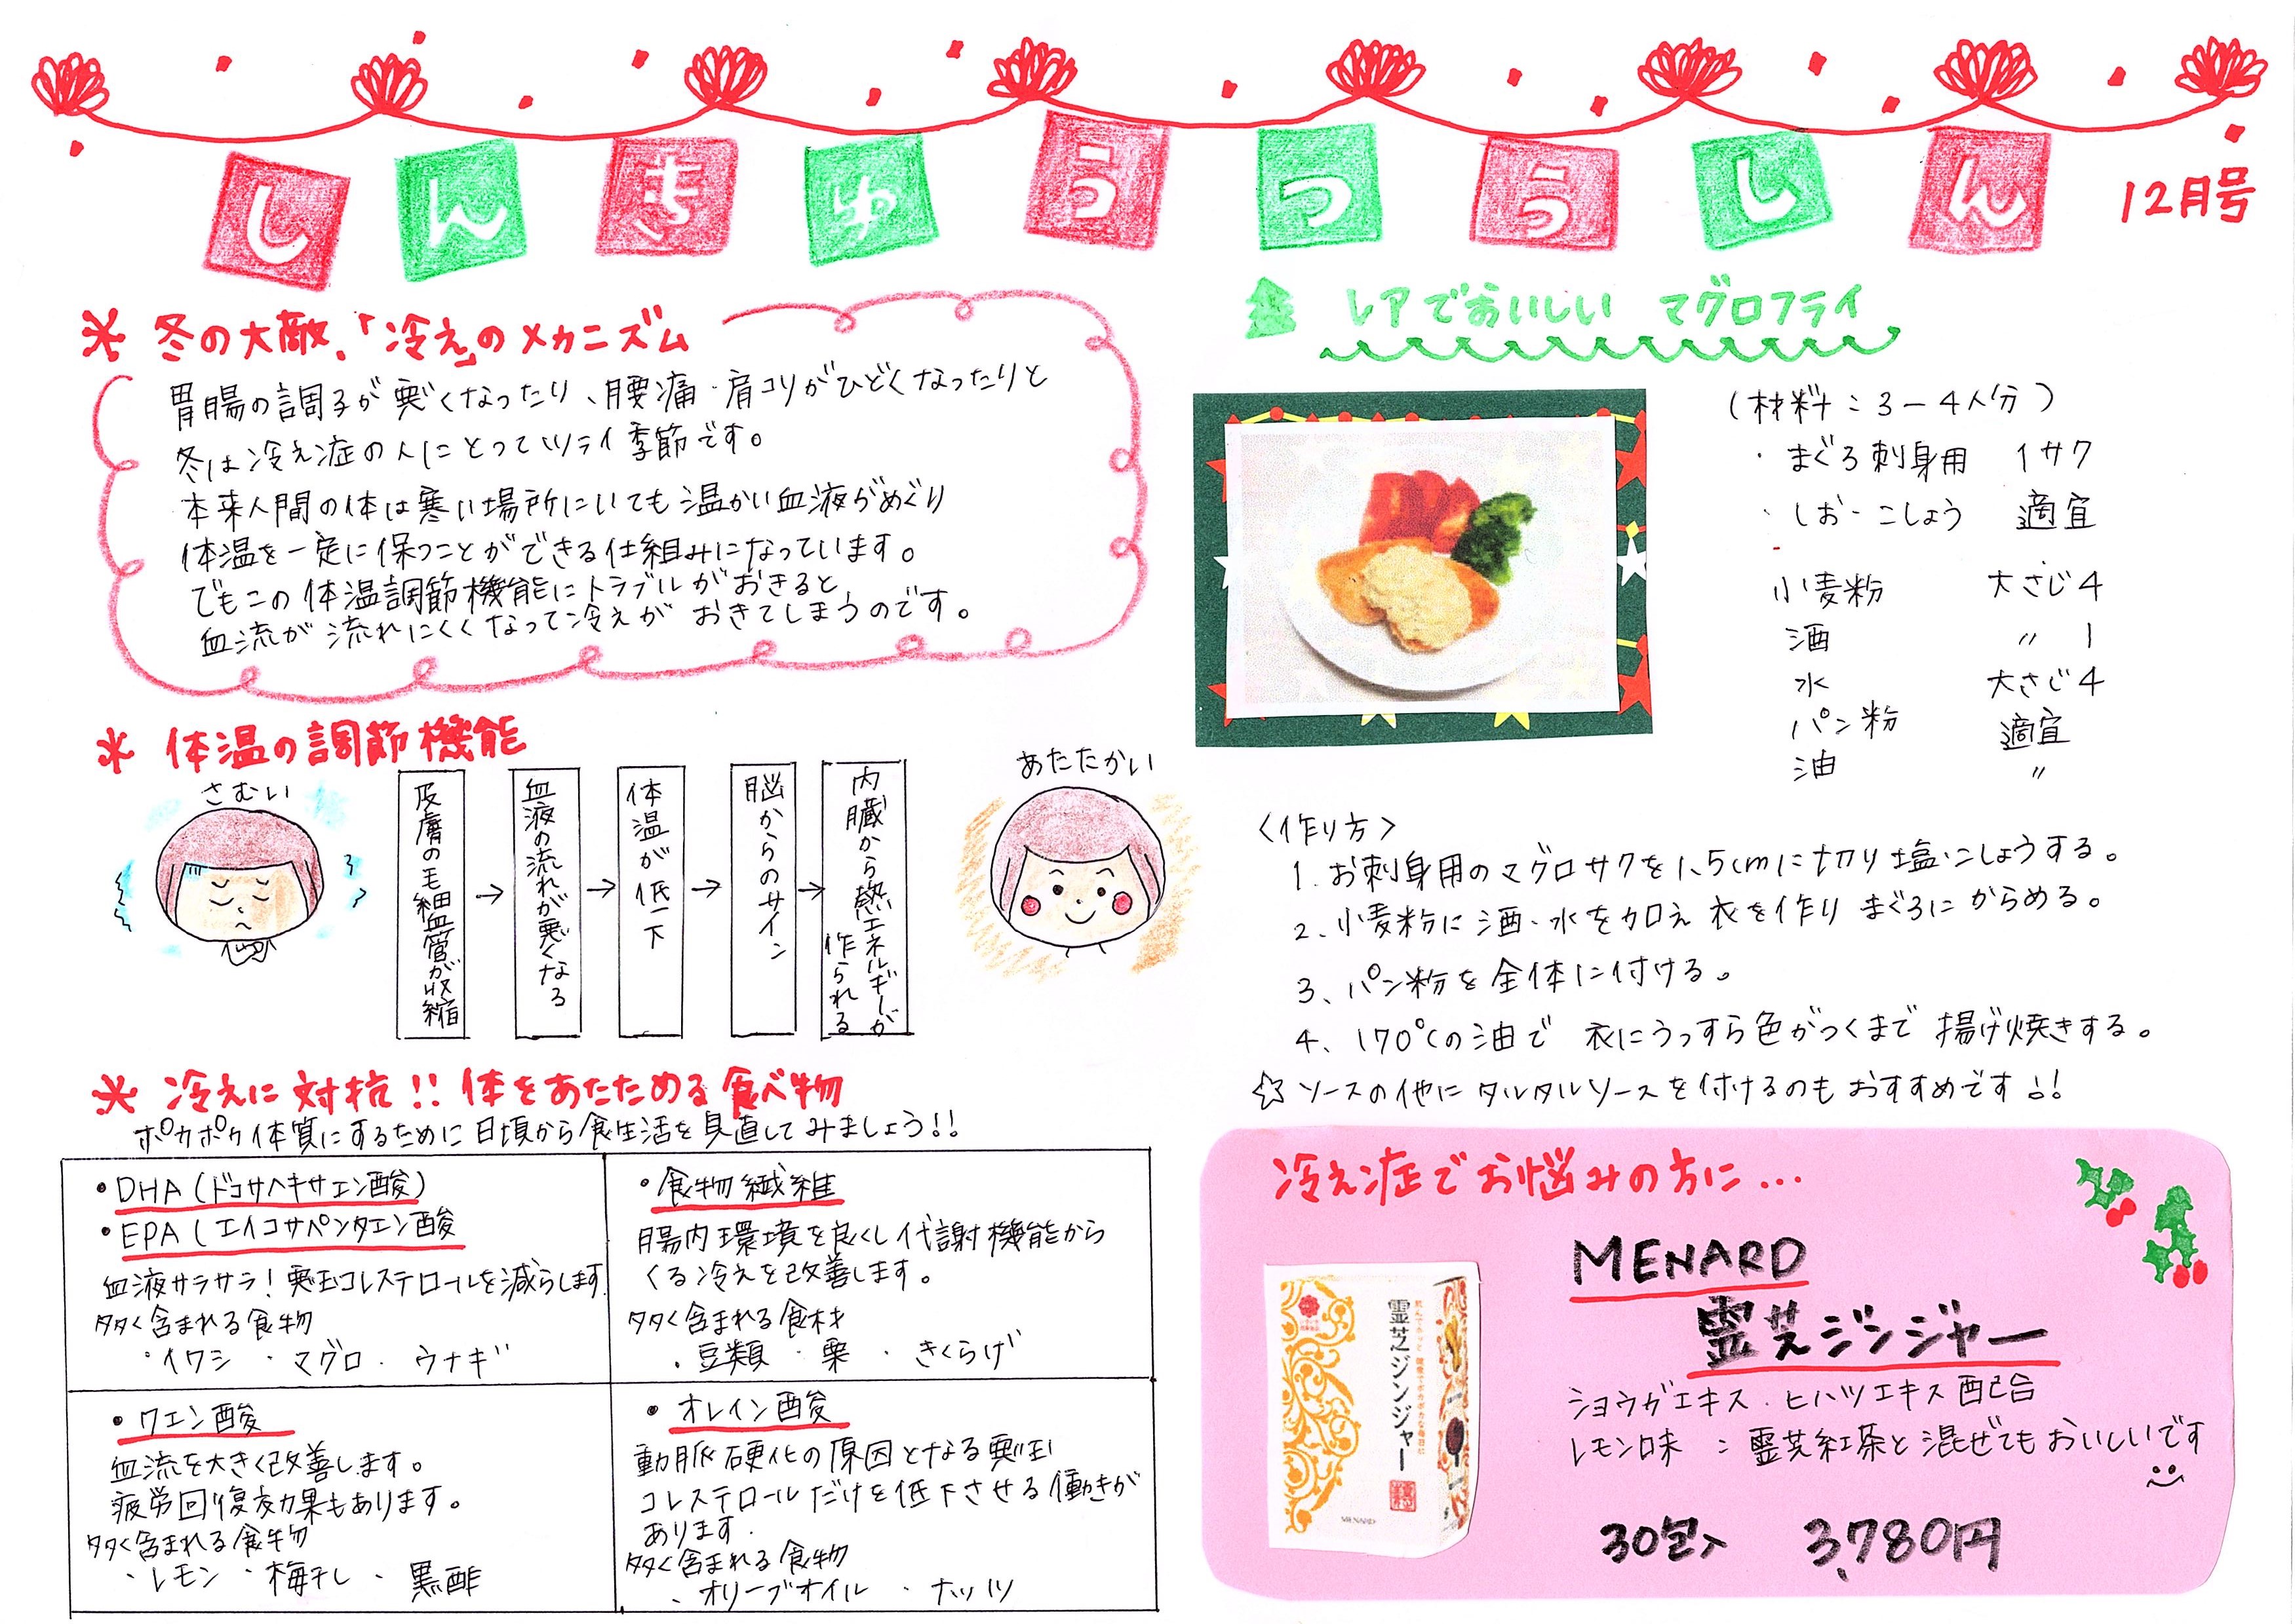 しんきゅうつうしん
12月号
＊ 冬の大敵、「冷え」のメカニズム
胃腸の調子が悪くなったり、腰痛・肩コリがひどくなったりと
冬は冷え症の人にとってツライ季節です。
本来人間の体は寒い場所にいても温かい血液がめぐり
体温を一定に保つことができる仕組みになっています。
でもこの体温調節機能にトラブルがおきると
血流が流れにくくなって冷えがおきてしまうのです。
＊ 体温の調節機能
さむい
皮膚の毛細血管が収縮
→
血液の流れが悪くなる
→
体温が低下
→
脳からのサイン
→
内臓から熱エネルギーが
作られる
あたたかい
＊ 冷えに対抗!! 体をあたためる食べ物
ポカポカ体質にするために日頃から食生活を見直してみましょう!!
・DHA(ドコサヘキサエン酸)
・EPA(エイコサペンタエン酸
血液サラサラ！悪玉コレステロールを減らします.
多く含まれる食物
・イワシ ・マグロ・ウナギ
・食物繊維
腸内環境を良くし代謝機能から
くる冷えを改善します。
多く含まれる食材
・豆類 ・栗 ・きくらげ
・クエン酸
血流を大きく改善します。
疲労回復効果もあります。
多く含まれる食物
・レモン ・梅干し ・黒酢
・オレイン酸
動脈硬化の原因となる悪玉
コレステロールだけを低下させる働きが
あります.
多く含まれる食物
・オリーブオイル ・ナッツ
レアでおいしい マグロフライ
(材料：3－4人分)
・まぐろ刺身用 1サク
・しお・こしょう 適宜
小麦粉 大さじ4
酒 〃 1
水 大さじ4
パン粉 適宜
油 〃
〈作り方〉
1. お刺身用のマグロサクを1.5cmに切り塩・こしょうする。
2、小麦粉に酒・水を加え衣を作りまぐろにからめる。
3、パン粉を全体に付ける。
4、170℃の油で 衣にうっすら色がつくまで揚げ焼きする。
☆ソースの他にタルタルソースを付けるのもおすすめです!!
冷え症でお悩みの方に...
MENARD
霊芝ジンジャー
霊芝ジンジャー
MENARD
ショウガエキス・ヒハツエキス配合
レモン味：霊芝紅茶と混ぜてもおいしいです
30包入 3,780円